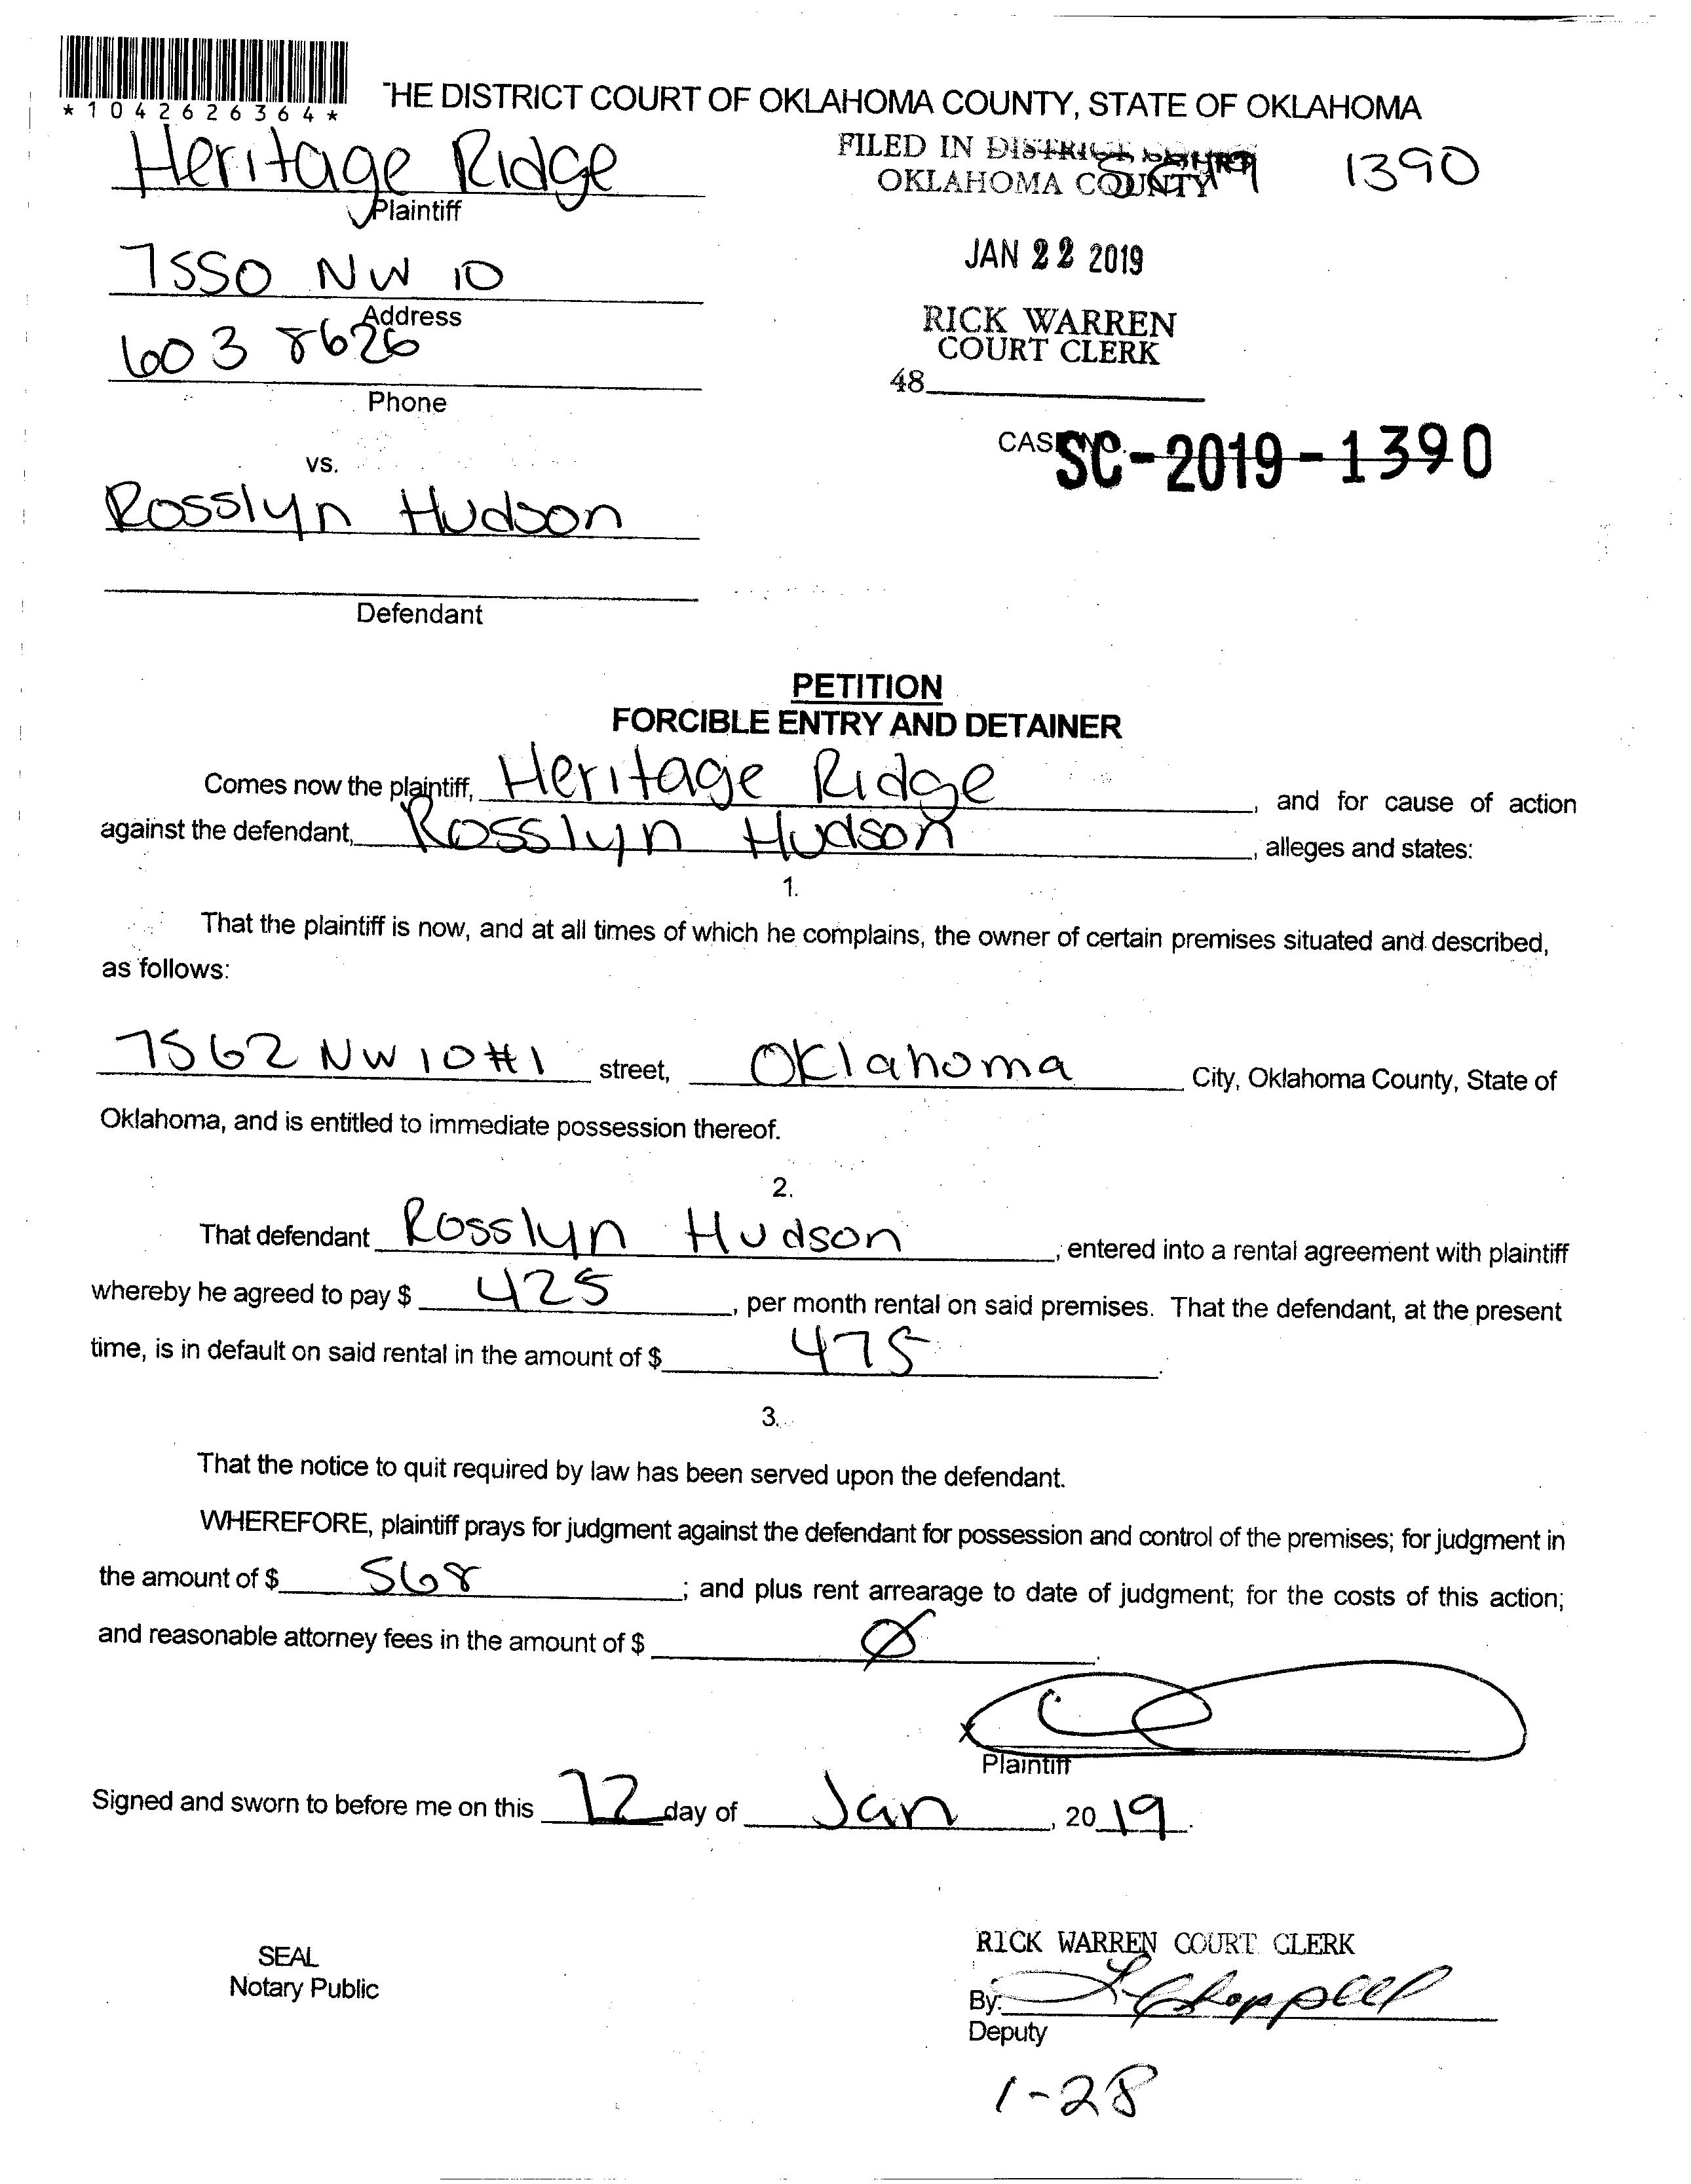 *1042626364*
THE DISTRICT COURT OF OKLAHOMA COUNTY, STATE OF OKLAHOMA
Heritage Ridge
Plaintiff
FILED IN DISTRICT COURT
OKLAHOMA COUNTY
1390
7550 NW 10
Address
JAN 22 2019
603 8626
Phone
RICK WARREN
COURT CLERK
48
CASE NO. SC-2019-1390
vs.
Rosslyn Hudson
Defendant
PETITION
FORCIBLE ENTRY AND DETAINER
Comes now the plaintiff, Heritage Ridge, and for cause of action
against the defendant, Rosslyn Hudson, alleges and states:
1.
That the plaintiff is now, and at all times of which he complains, the owner of certain premises situated and described,
as follows:
7562 NW 10 #1 street, Oklahoma City, Oklahoma County, State of
Oklahoma, and is entitled to immediate possession thereof.
2.
That defendant Rosslyn Hudson, entered into a rental agreement with plaintiff
whereby he agreed to pay $ 425, per month rental on said premises. That the defendant, at the present
time, is in default on said rental in the amount of $ 475.
3.
That the notice to quit required by law has been served upon the defendant.
WHEREFORE, plaintiff prays for judgment against the defendant for possession and control of the premises; for judgment in
the amount of $ 568; and plus rent arrearage to date of judgment; for the costs of this action;
and reasonable attorney fees in the amount of $ Ø.
x
Plaintiff
Signed and sworn to before me on this 22 day of Jan, 2019.
SEAL
Notary Public
RICK WARREN COURT CLERK
By: L Chappell
Deputy
1-28